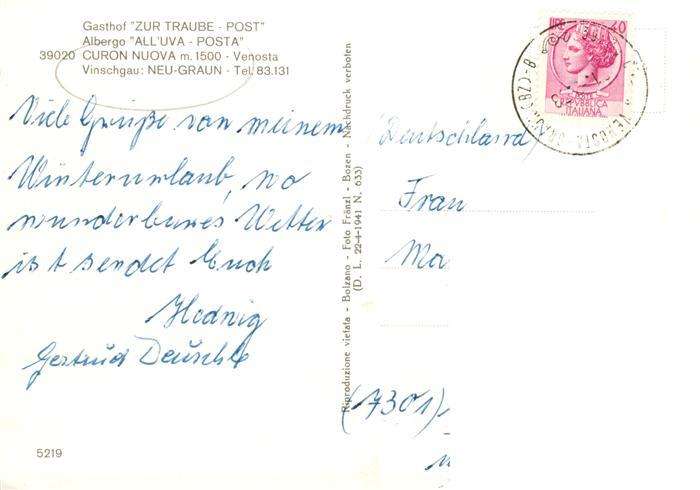 Gasthof "ZUR TRAUBE - POST"
Albergo "ALL'UVA - POSTA"
39020 CURON NUOVA m. 1500 - Venosta
Vinschgau: NEU-GRAUN - Tel. 83.131
Viele Grüße von meinem
Winterurlaub, wo
wunderbares Wetter
ist sendet Euch
Hedwig
Gertrud Deuschle
5219
Riproduzione vietata - Bolzano - Foto Fränzl - Bozen - Nachdruck verboten
(D. L. 22-4-1941 N. 633)
LIRE 40
POSTE
REPUBBLICA
ITALIANA
Deutschland
Frau
Ma
(7301)